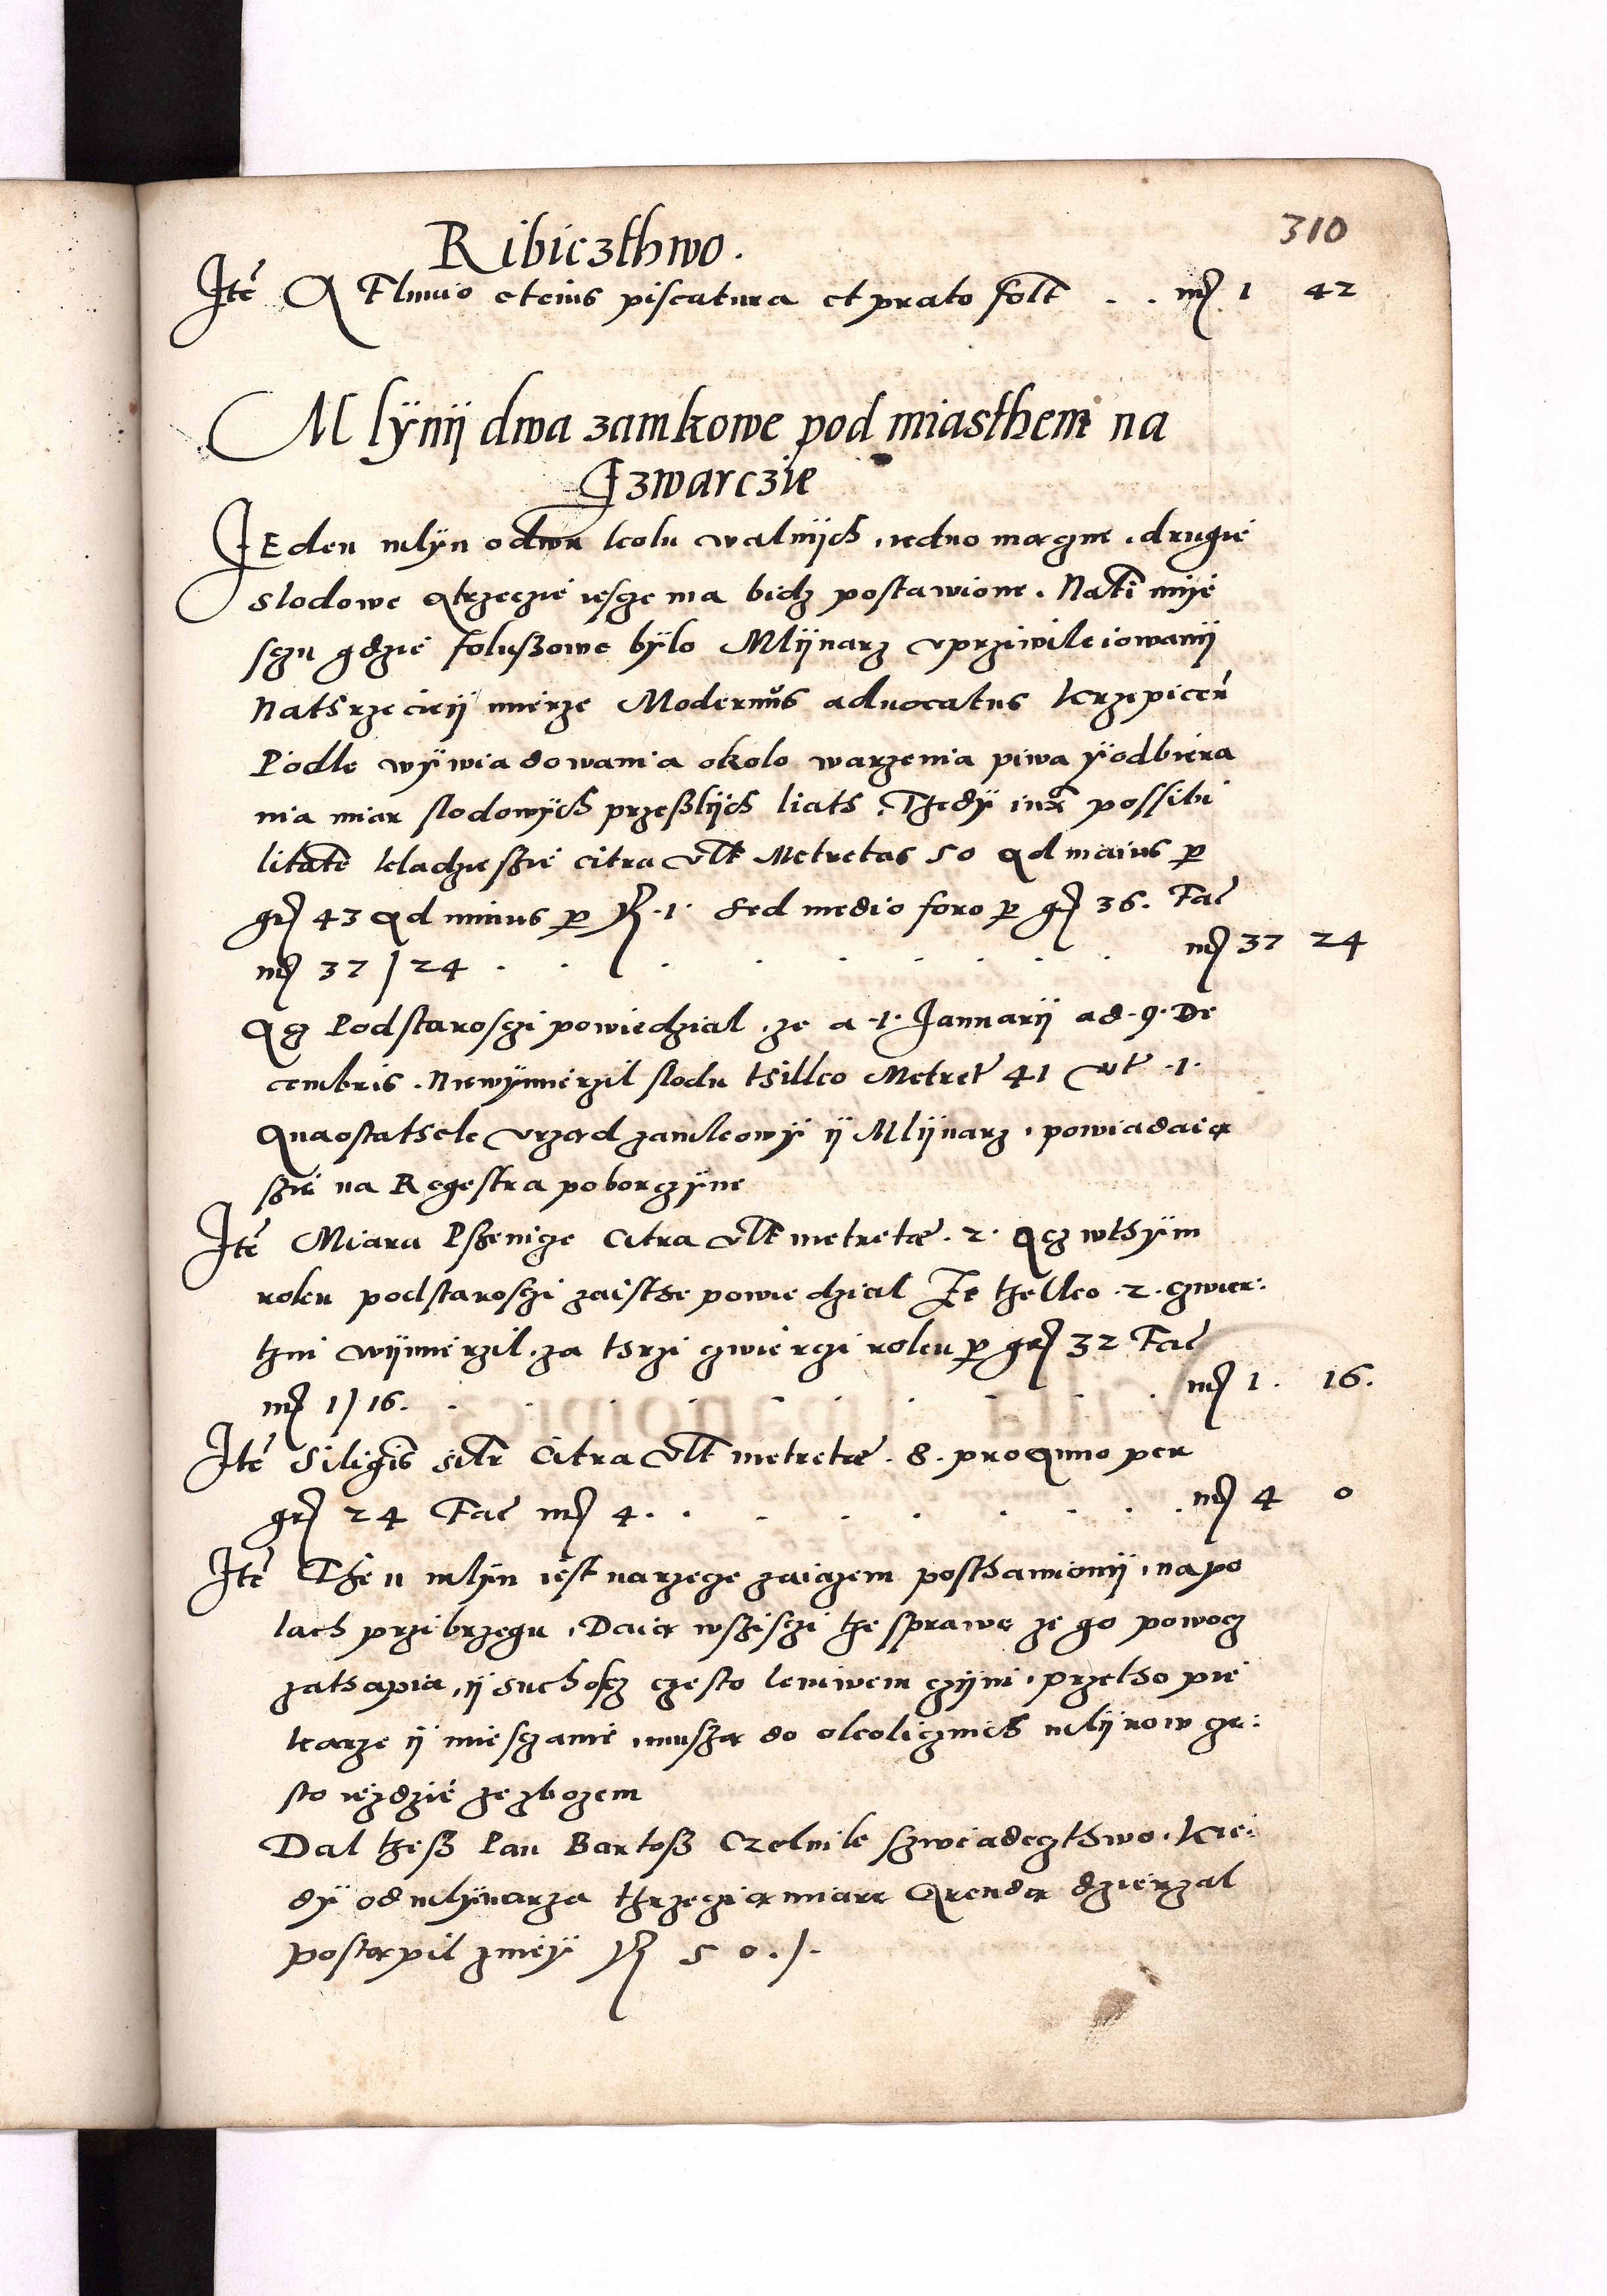 310
Ribiczthwo.
Ité A Fluuio et eius piscatura et prato solt . . mr 1 42
Mlÿnÿ dwa zamkowe pod miasthem na
Czwarczie
JEden mlÿn o dwu kolu walnÿch, iedno mączne, drugié
slodowe A trzeczié iescze ma bidz postawione. Na tĩ mÿé
sczu gdzié folußowe bÿlo Mlÿnarz vprziwileiowanÿ
Na thrzecieÿ mierze Modernũs aduocatus Krzepiceñ
Podle wÿwiadowania okolo warzenia piwa ÿ odbiera
nia miar slodowÿch przeßlÿch liath, Thedÿ iuxᵃ possibi
litatē kladzie szié citra vlť Metretas 50 Ad maius p
gr 43 Ad minus p fl .1. Sed medio foro p gr 36. Fać
mr 37 / 24 . . . . . . . . . mr 37 24
Acz Podstarosczi powiedzial, ze a .1. Januarÿ ad .9. De
cembris. Nie wÿmierzil slodu thilko Metret 41 vrt .1.
A na ostathek vrzad zamkowÿ ÿ Mlÿnarz, powiadaią
szié na Regestra poborczÿne
Ité Miara Pszenicze Citra vlť metretæ. 2. Acz w thÿm
roku podstarosczi zaisthe powiedzial Ze thelko .2. czwier:
thni wÿmierzil, za thrzi czwierczi roku p gr 32 Fać
mr 1 / 16. . . . . . . . . mr 1. 16.
Ité Siligis sĩlr Citra vlť metretæ. 8. pro Anno per
gr 24 Fać mr 4. . . . . . . . . mr 4 0
Ité Then mlÿn iést na rzecze zaiazem posthawionÿ, na po
lach przi brzegu, Daią wszisczi the sprawę ze go powocz
zathapia, ÿ suchoscz czesto leniwem czÿni, przetho pie
karze ÿ miesczanié, musżą do okolicznich mlÿnow cze:
sto iezdzié ze zbozem
Dal theß Pan Bartoß Czelnik szwiadecztwo, kie:
dÿ od mlÿnarza thrzeczią miarę Arendą dzierzal
postąpil z niéÿ fl 50./.